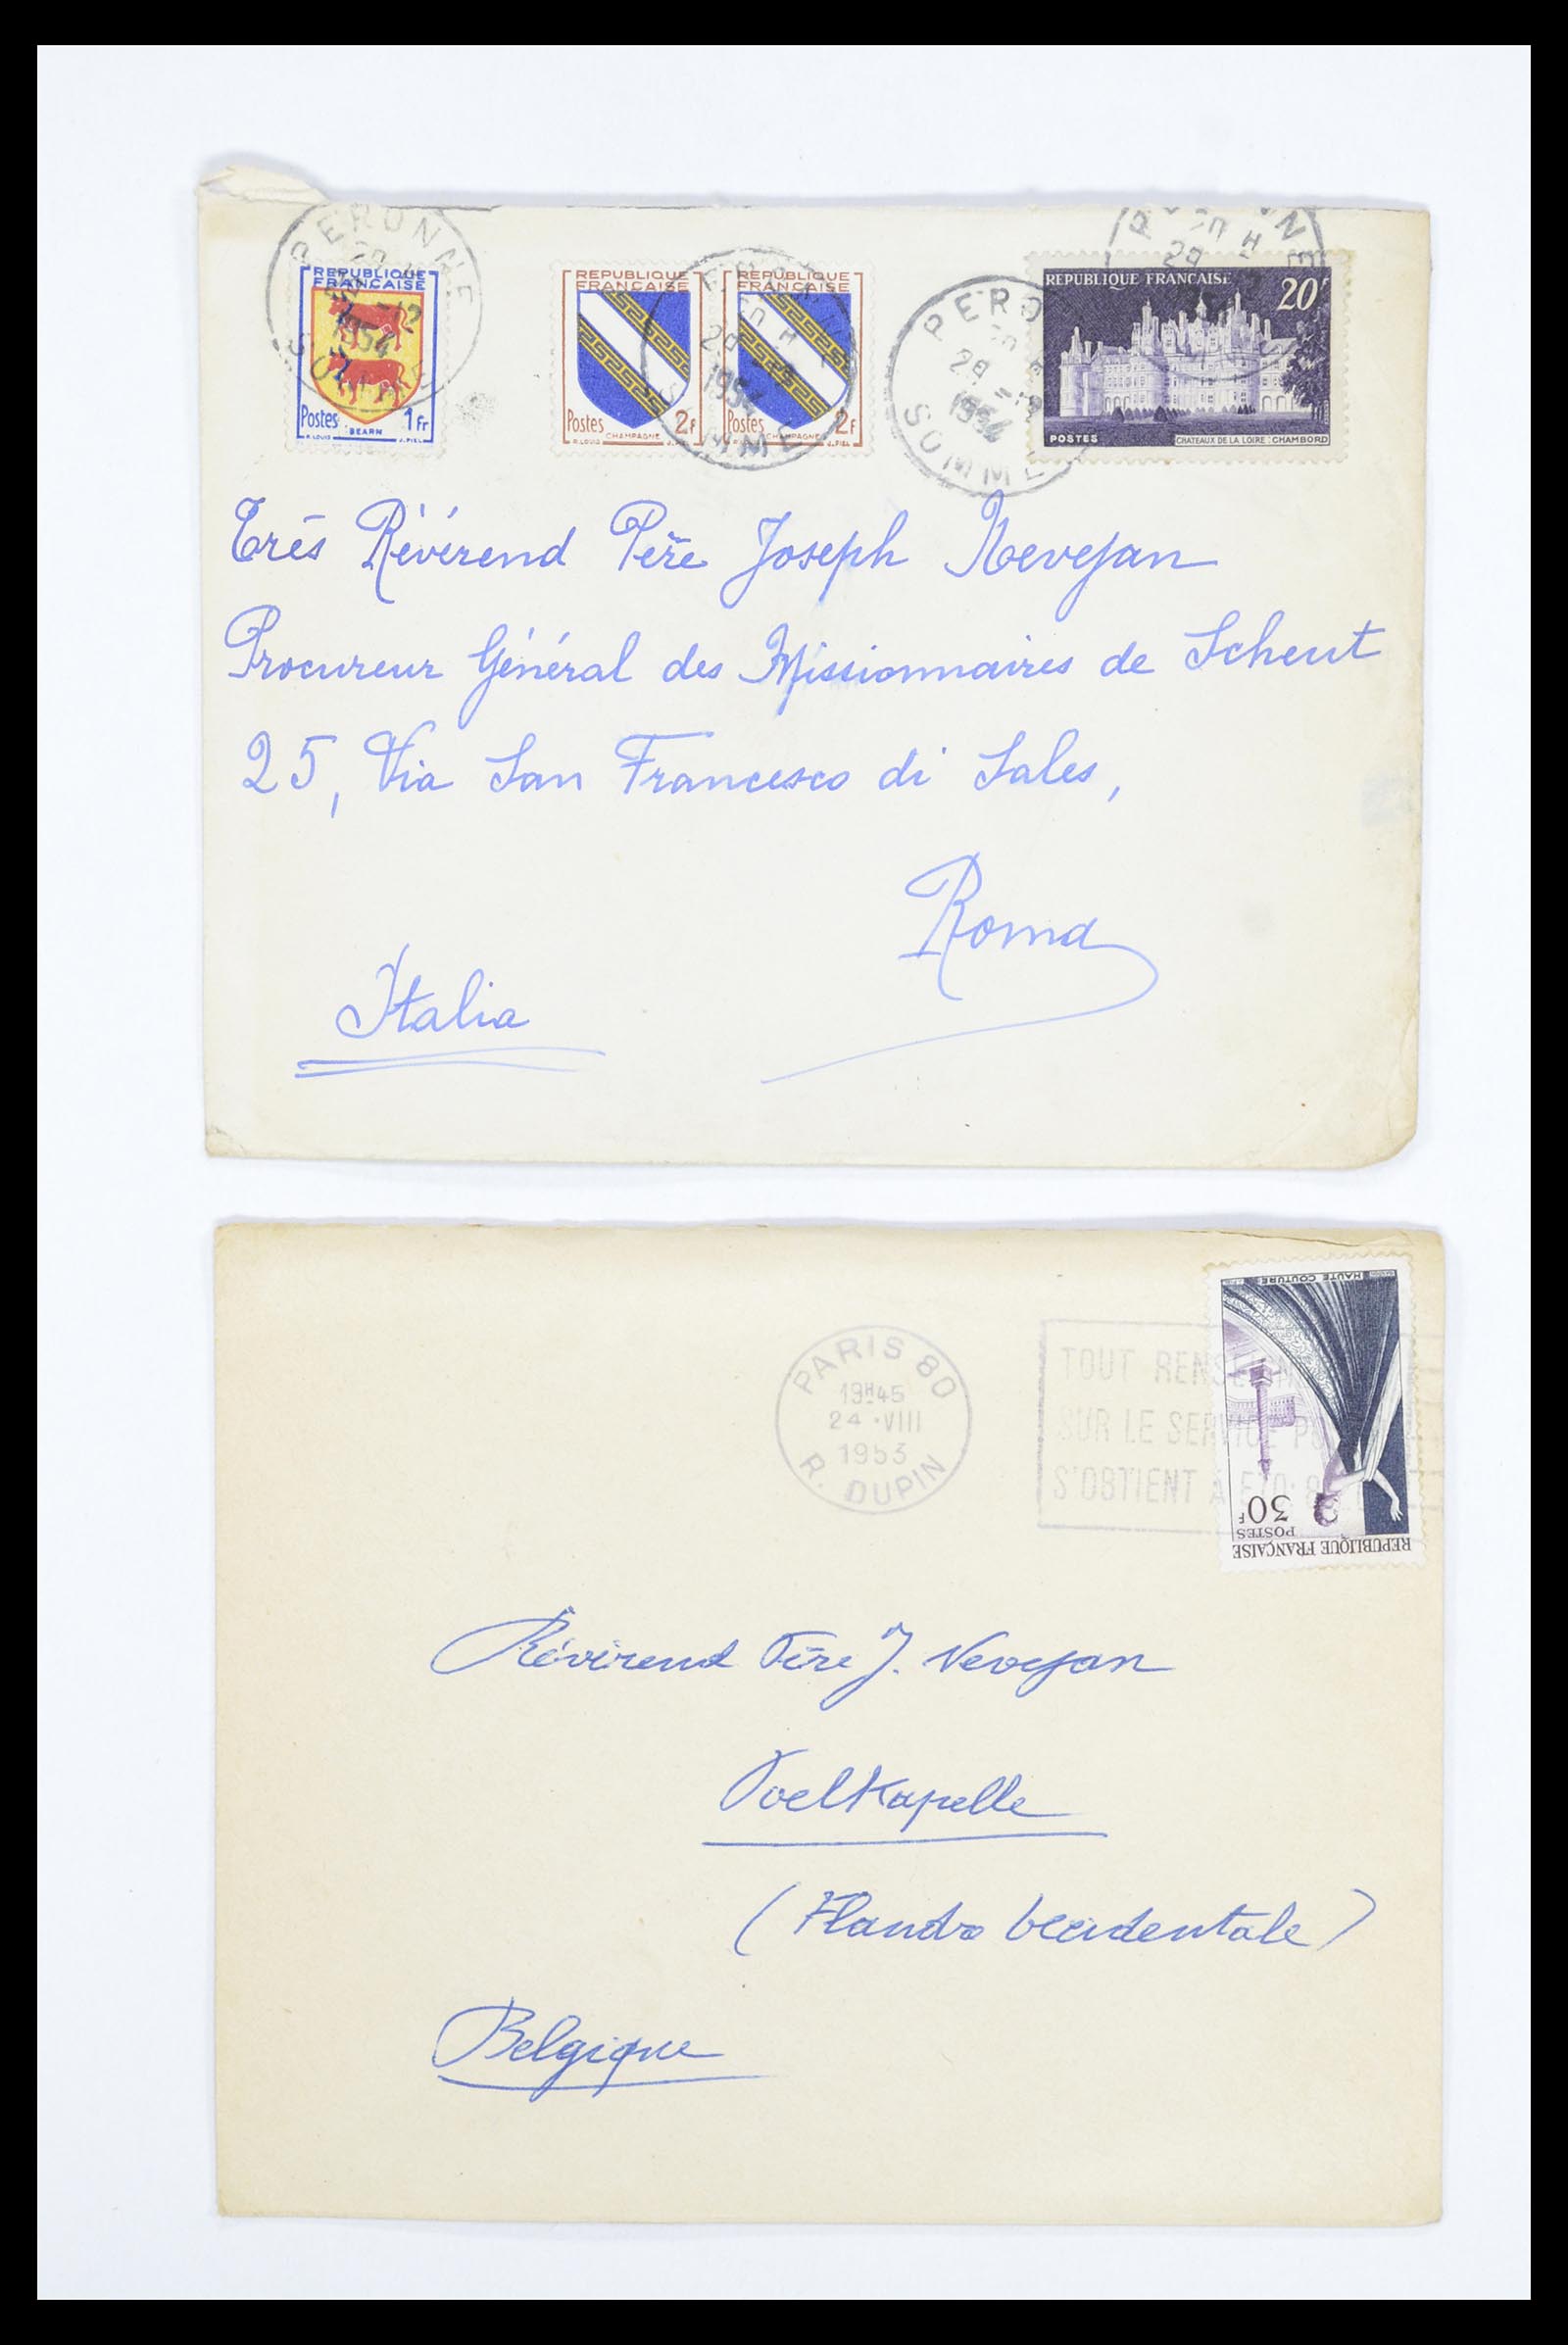 PERONNE
1954
SOMME
REPUBLIQUE FRANÇAISE
Postes 1Fr
R. LOUIS BEARN J. PIEL
REPUBLIQUE FRANÇAISE
Postes 2F
R. LOUIS CHAMPAGNE J. PIEL
REPUBLIQUE FRANÇAISE
Postes 2F
R. LOUIS CHAMPAGNE J. PIEL
1954
PERO
1954
SOMME
REPUBLIQUE FRANÇAISE 20F
POSTES CHATEAUX DE LA LOIRE : CHAMBORD
Très Révérend Père Joseph Nevejan
Procureur Général des Missionnaires de Scheut
25, Via San Francesco di Sales,
Roma
Italia
HAUTE COUTURE
PARIS 80
19H45
24 · VIII
1953
R. DUPIN
TOUT RENSEIGN
SUR LE SERVICE PO
S'OBTIENT A
30F
POSTES
REPUBLIQUE FRANÇAISE
Révérend Père J. Nevejan
Poelkapelle
(Flandre Occidentale)
Belgique